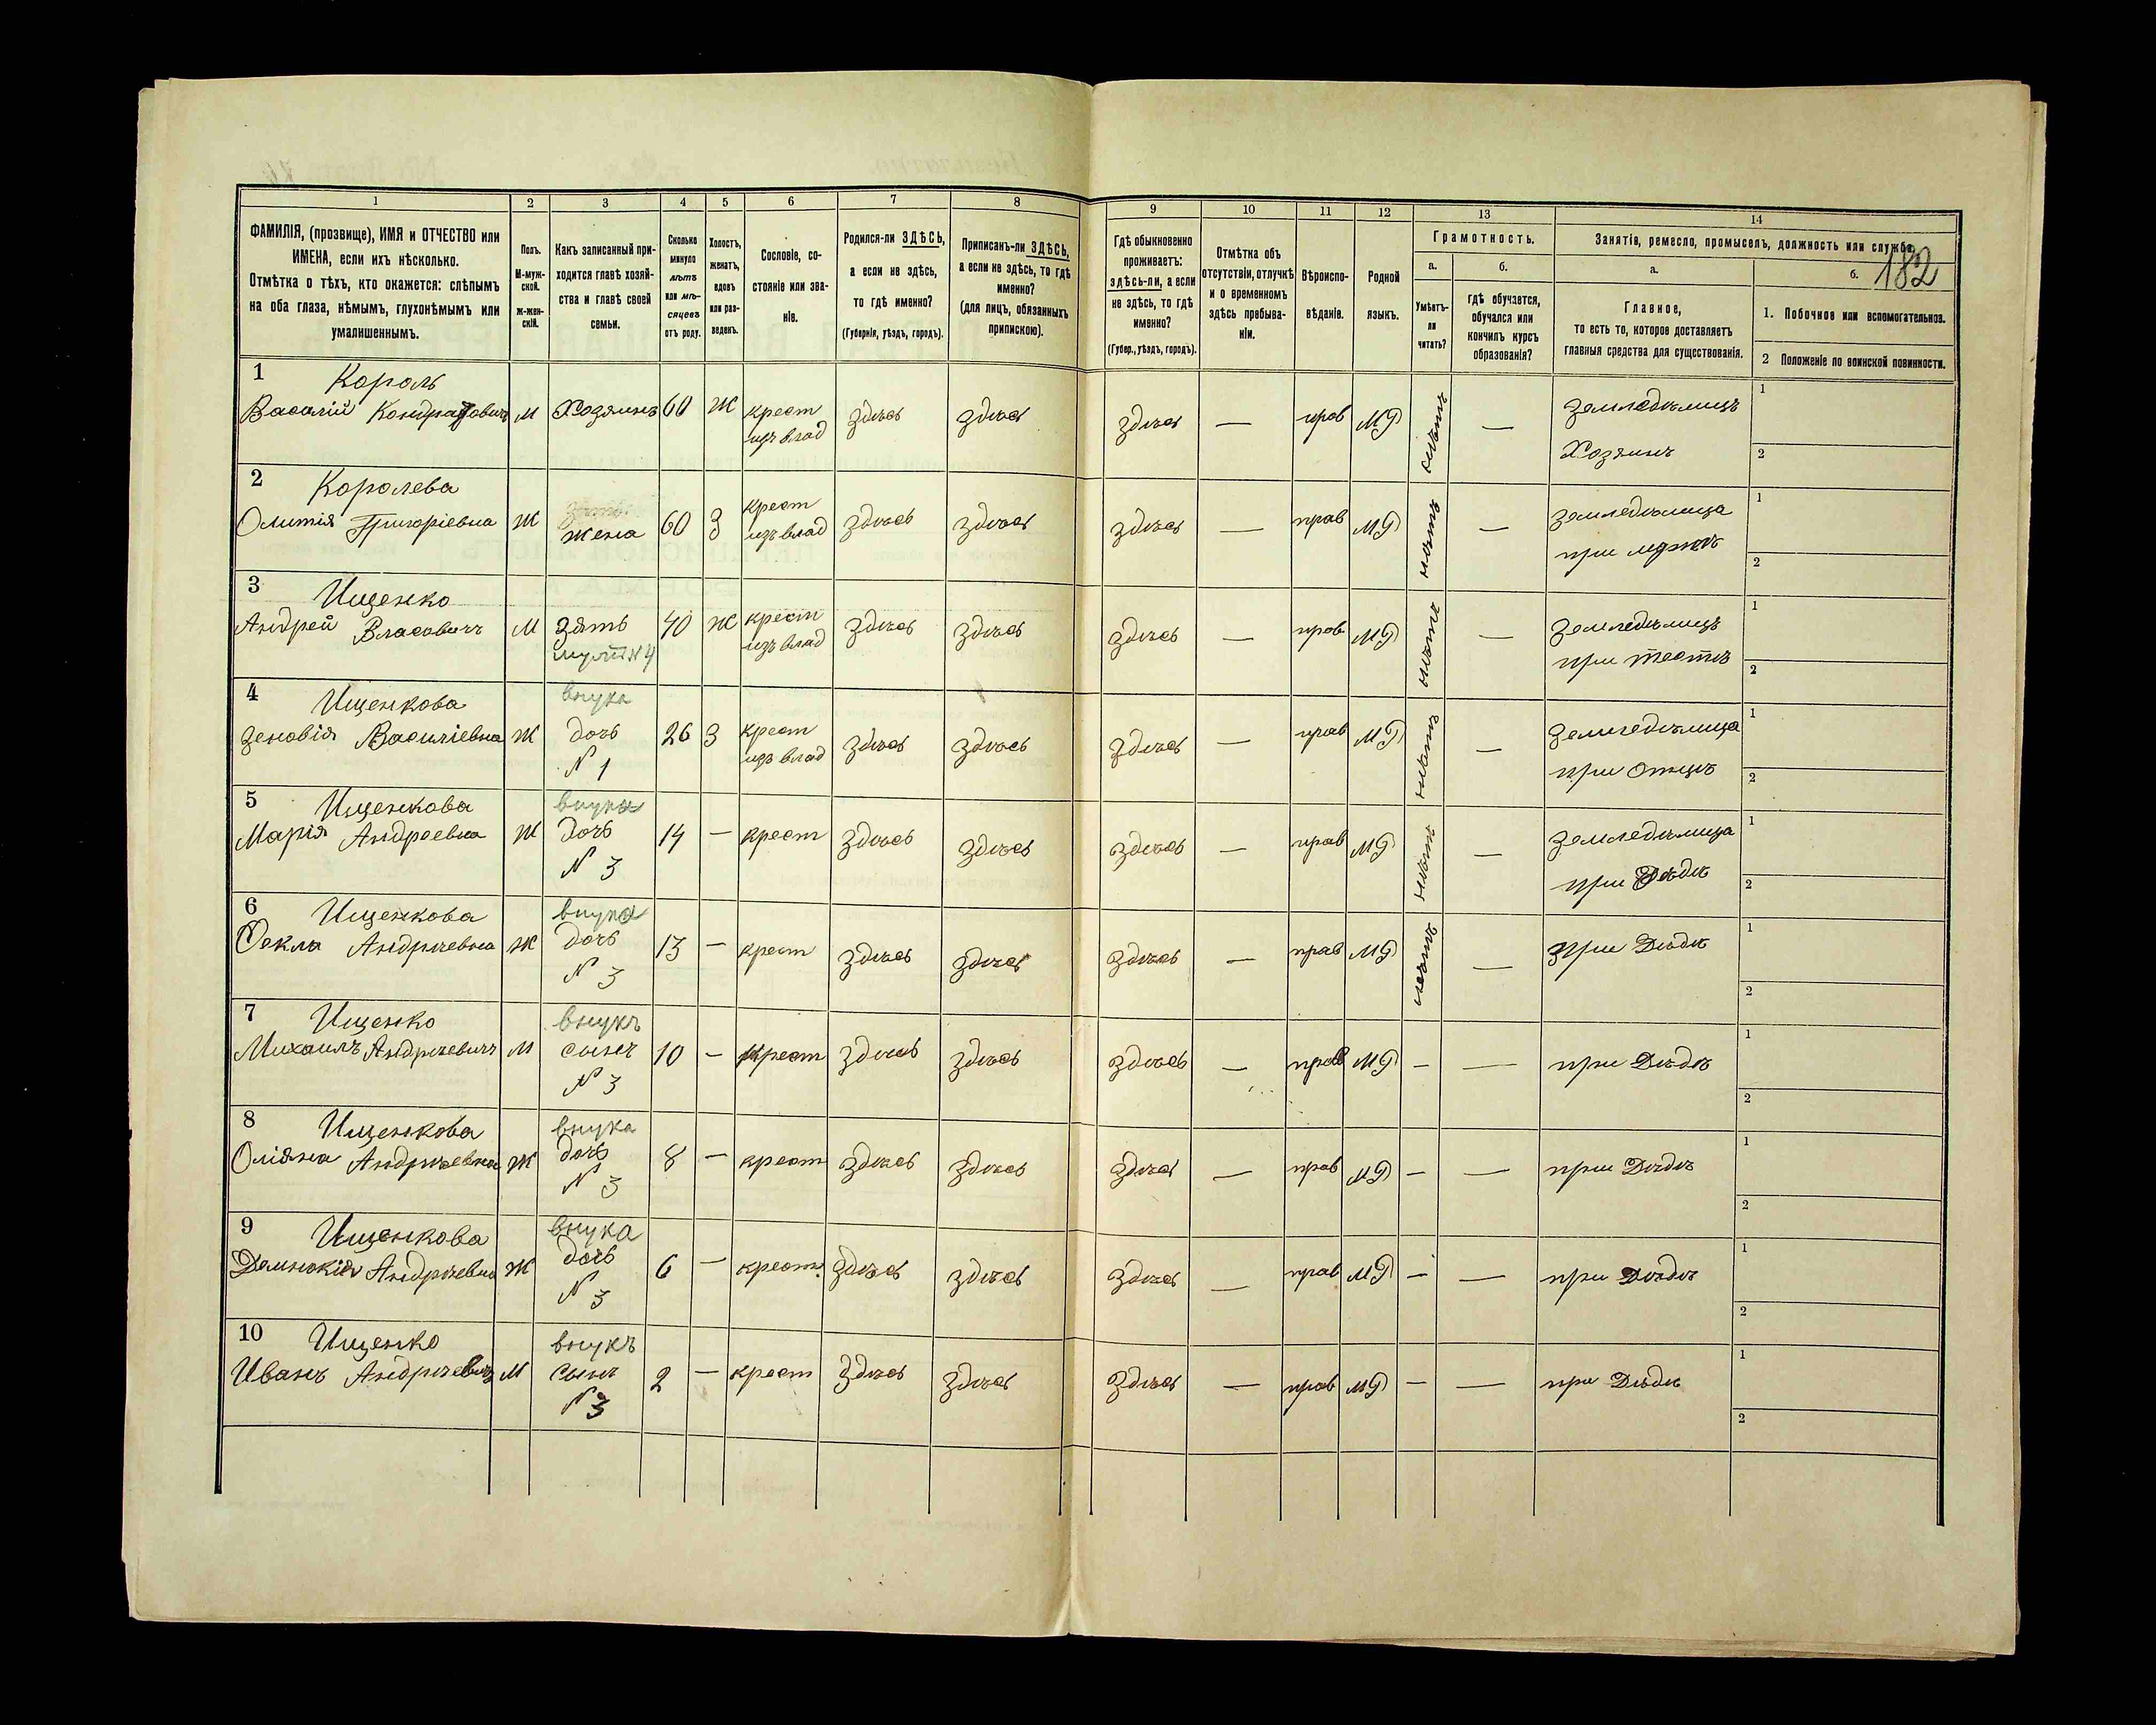 1 2 3 4 5 6 7 8 9 10 11 12 13 14
ФАМИЛІЯ, (прозвище), ИМЯ и ОТЧЕСТВО или
ИМЕНА, если ихъ нѣсколько.
Отмѣтка о тѣхъ, кто окажется: слѣпымъ
на оба глаза, нѣмымъ, глухонѣмымъ или
умалишеннымъ.
Полъ.
М-муж-
ской.
ж-жен-
скій.
Какъ записанный при-
ходится главѣ хозяй-
ства и главѣ своей
семьи.
Сколько
минуло
лѣтъ
или мѣ-
сяцевъ
отъ роду.
Холостъ,
женатъ,
вдовъ
или раз-
веденъ.
Сословіе, со-
стояніе или зва-
ніе.
Родился-ли ЗДѢСЬ,
а если не здѣсь,
то гдѣ именно?
(Губернія, уѣздъ, городъ).
Приписанъ-ли ЗДѢСЬ,
а если не здѣсь, то гдѣ
именно?
(для лицъ, обязанныхъ
припискою).
Гдѣ обыкновенно
проживаетъ:
здѣсь-ли, а если
не здѣсь, то гдѣ
именно?
(Губер., уѣздъ, городъ).
Отмѣтка объ
отсутствіи, отлучкѣ
и о временномъ
здѣсь пребыва-
ніи.
Вѣроиспо-
вѣданіе.
Родной
языкъ.
Грамотность.
а.
Умѣетъ-
ли
читать?
б.
Гдѣ обучается,
обучался или
кончилъ курсъ
образованія?
Занятіе, ремесло, промыселъ, должность или служба.
182
а.
Главное,
то есть то, которое доставляетъ
главныя средства для существованія.
б.
1. Побочное или вспомогательное.
2 Положеніе по воинской повинности.
1 Король
Василій Кондратовичъ М Хозяинъ 60 Ж крест здѣсь здѣсь здѣсь — прав МР нѣтъ — земледѣлицъ 1
изъ влад Хозяинъ 2
2 Королева
Олитія Григоріевна Ж жена 60 З крест здѣсь здѣсь здѣсь — прав МР нѣтъ — земледѣлица 1
изъ влад при мужѣ 2
3 Ищенко
Андрей Власовичъ М зять 40 Ж крест здѣсь здѣсь здѣсь — прав МР нѣтъ — земледѣлицъ 1
мужъ N 4 изъ влад при тестѣ 2
4 Ищенкова внука
Зеновія Василіевна Ж дочь 26 З крест здѣсь здѣсь здѣсь — прав МР нѣтъ — земледѣлица 1
N 1 изъ влад при Отцѣ 2
5 Ищенкова внука
Марія Андреевна Ж дочь 14 — крест здѣсь здѣсь здѣсь — прав МР нѣтъ — земледѣлица 1
N 3 при Дѣдѣ 2
6 Ищенкова внука
Фекла Андрѣевна Ж дочь 13 — крест здѣсь здѣсь здѣсь — прав МР нѣтъ — при Дѣдѣ 1
N 3 2
7 Ищенко внукъ
Михаилъ Андрѣевичъ М сынъ 10 — крест здѣсь здѣсь здѣсь — прав МР — — при Дѣдѣ 1
N 3 2
8 Ищенкова внука
Оліяна Андрѣевна Ж дочь 8 — крест здѣсь здѣсь здѣсь — прав МР — — при Дѣдѣ 1
N 3 2
9 Ищенкова внука
Андрѣевна Ж дочь 6 — крест здѣсь здѣсь здѣсь — прав МР — — при Дѣдѣ 1
N 3 2
10 Ищенко внукъ
Иванъ Андрѣевичъ М сынъ 2 — крест здѣсь здѣсь здѣсь — прав МР — — при Дѣдѣ 1
N 3 2